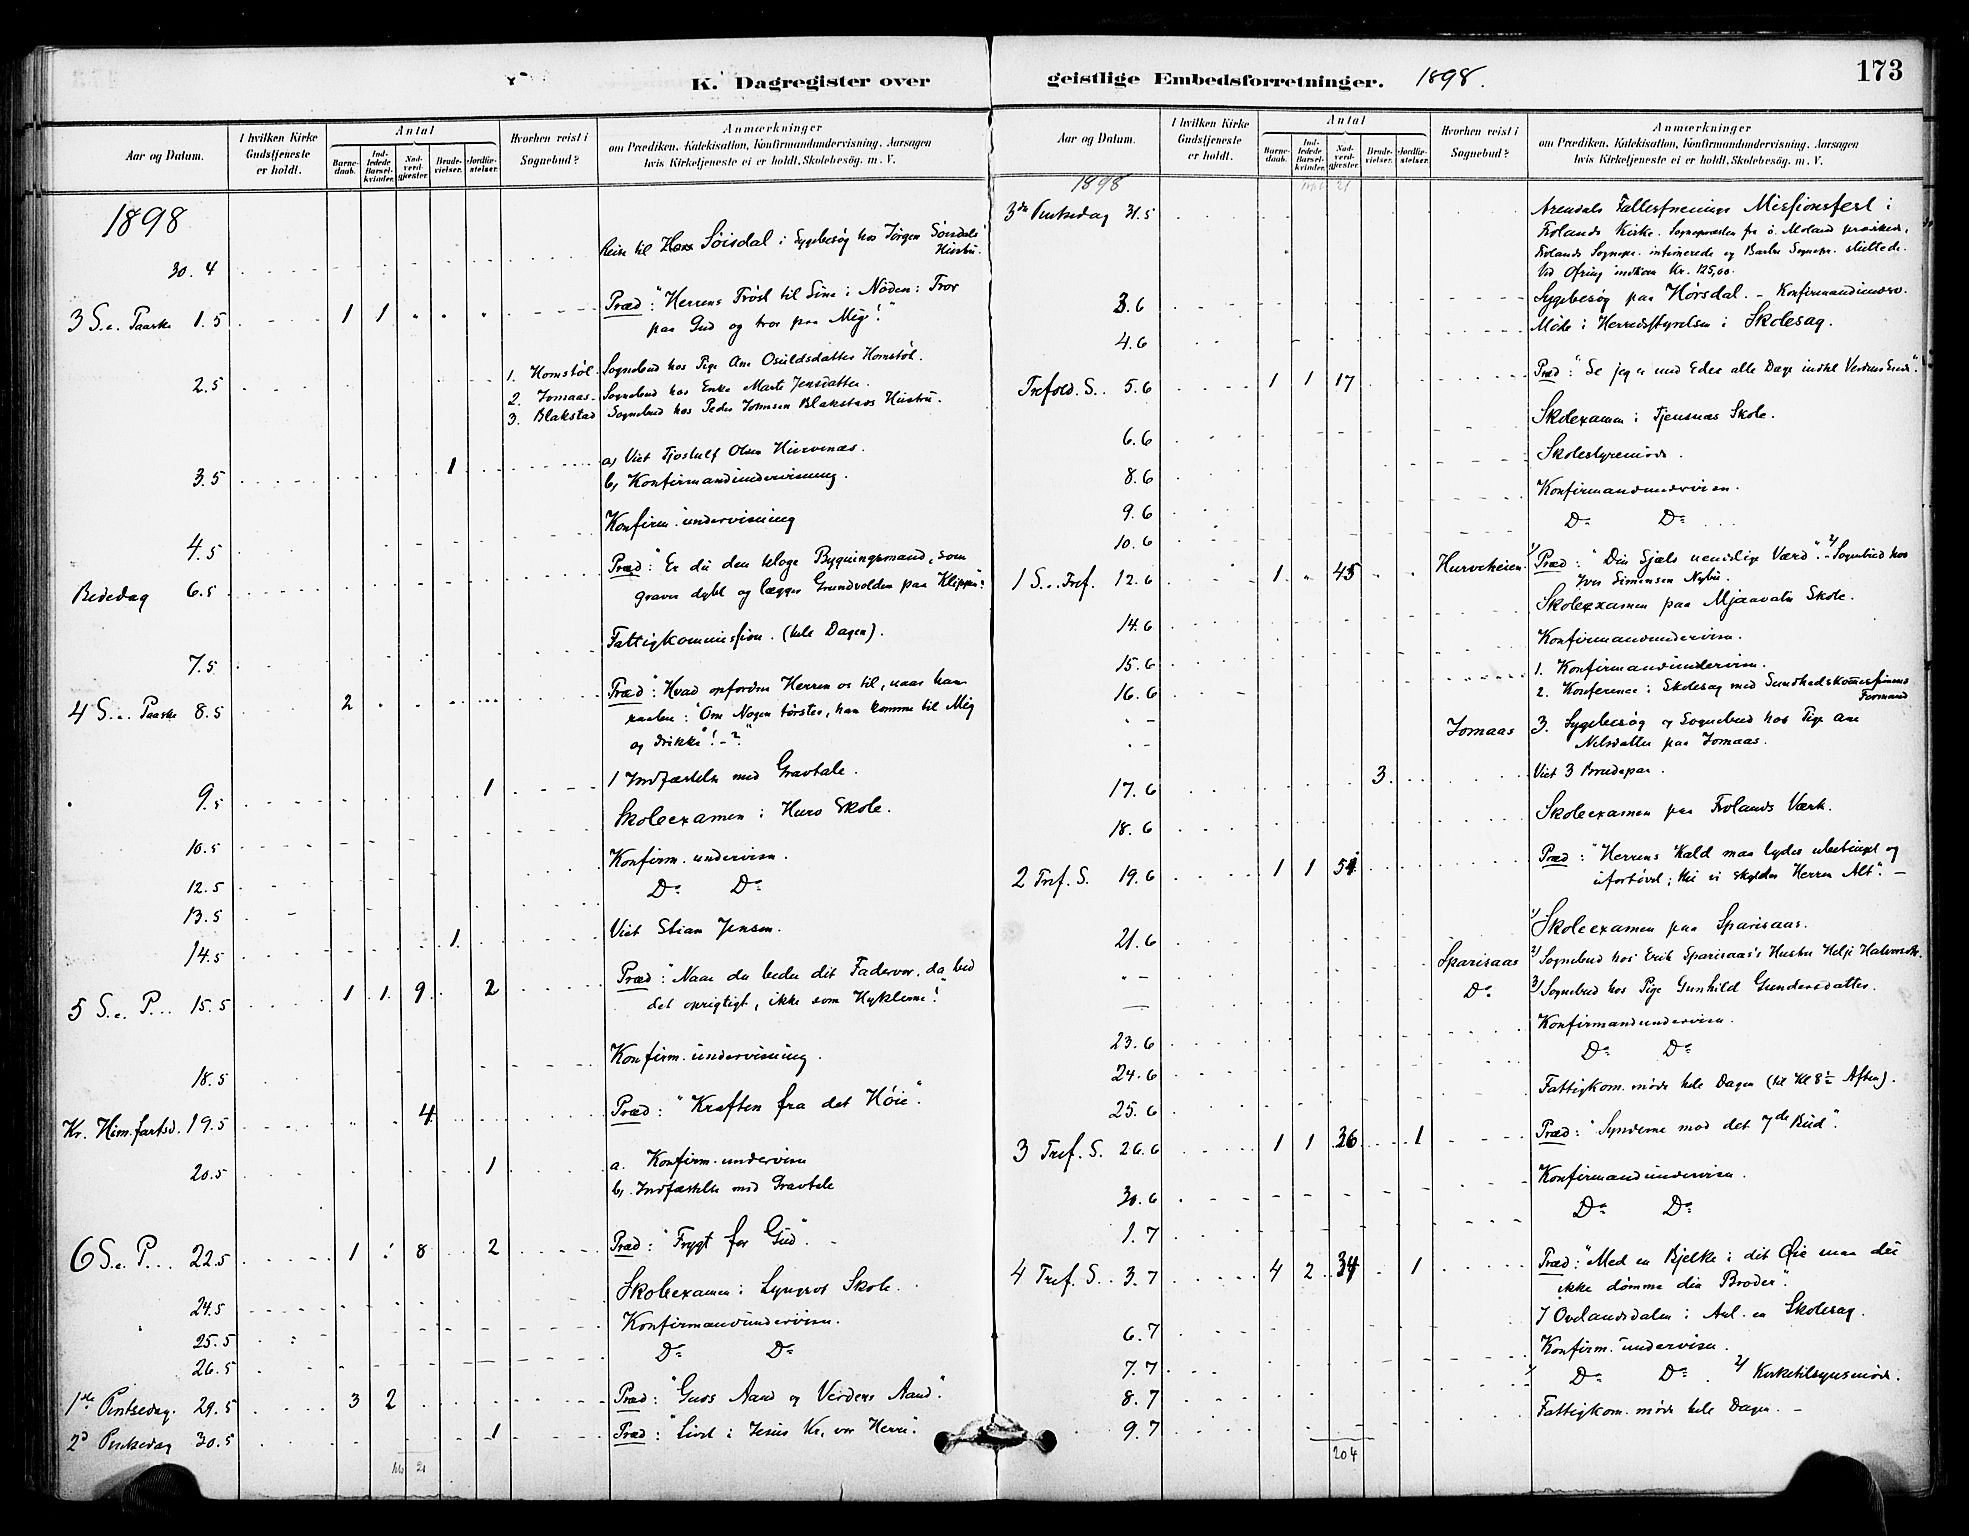 K. Dagregister over geistlige Embedsforretninger. 1898.
173
Aar og Datum.
I hvilken Kirke Gudstjeneste er holdt.
Antal
Barnedaab.
Indledede Barselkvinder.
Nadverdgjester.
Brudevielser.
Jordfæstelser.
Hvorhen reist i Sognebud?
Anmærkninger
om Prædiken, Katekisation, Konfirmandundervisning, Aarsagen
hvis Kirketjeneste ei er holdt, Skolebesög. m. V.
1898
30.4 Reise til Søisdal i Sygebesøg hos Jørgen Søisdals
Hustru.
3 S. e. Paaske 1.5 1 1 Præd: "Herrens Trøst til Sine i Nøden: Tror
paa Gud og tror paa Mig!"
2.5 1. Homstøl. Sognebud hos Pige Ane Osuldsdatter Homstøl.
2. Jomaas. Sognebud hos Enke Marte Jensdatter.
3. Blakstad Sognebud hos Peder Jomsen Blakstads Hustru.
3.5 1 a) Viet Tjostulf Olsen Hurvenæs.
b) Konfirmandundervisning.
4.5 Konfirm. undervisning
Bededag 6.5 Præd: "Er du den kloge Bygningsmand, som
graver dybt og lægger Grundvolden paa Klippen":
7.5 Fattigkommission. (hele Dagen).
4 S. e. Paaske 8.5 2 Præd: "Hvad opfordrer Herren os til, naar han
raaber: "Om Nogen tørster, han komme til Mig
og drikke"! - ?"
9.5 1 1 Jordfæstelse med Gravtale.
10.5 Skoleexamen i Hurv Skole.
12.5 Konfirm. undervisn.
13.5 Do Do
14.5 1 Viet Stian Jensen.
5 S. e. P... 15.5 1 1 9 2 Præd: "Naar du beder dit Fadervor, da bed
det oprigtigt, ikke som Hyklerne!"
18.5 Konfirm. undervisning.
Kr. Him.fartsd. 19.5 4 Præd: "Kraften fra det Høie".
20.5 1 a. Konfirm. undervisn
b). Jordfæstelse med Gravtale
6 S. e. P... 22.5 1 8 2 Præd: "Frygt for Gud".
24.5 Skoleexamen i Lyngrot Skole.
25.5 Konfirmandundervisn.
26.5 Do Do
1ste Pintsedag. 29.5 3 2 Præd: "Guds Aand og Verdens Aand".
2d Pintsedag 30.5 1 Præd: "Livet i Jesus Kr. vor Herre".
21
Aar og Datum.
I hvilken Kirke Gudstjeneste er holdt.
Antal
Barnedaab.
Indledede Barselkvinder.
Nadverdgjester.
Brudevielser.
Jordfæstelser.
Hvorhen reist i Sognebud?
Anmærkninger
om Prædiken, Katekisation, Konfirmandundervisning, Aarsagen
hvis Kirketjeneste ei er holdt, Skolebesög. m. V.
1898
21
3die Pintsedag 31.5 Arendals Fællesforenings Missionsfest i
Frolands Kirke. Sognepræsten fra ö. Moland prædikede,
Frolands Sognepr. intimerede og Barbu Sognepr. sluttede.
Ved Ofring indkom Kr. 125,00.
3.6 Sygebesøg paa Hørsdal. - Konfirmandunderv.
4.6 Møde i Herredsstyrelsen i Skolesag.
Trefold. S. 5.6 1 1 17 Præd: "Se jeg er med Eder alle Dage indtil Verdens Ende".
6.6 Skolexamen i Tjensnæs Skole.
8.6 Skolestyremøde.
9.6 Konfirmandundervisn.
10.6 Do Do
1 S. e. Tref. 12.6 1 45 Hurveheien 1/ Præd: "Din Sjæls uendelige Værd". 2/ Sognebud hos
Iver Simensen Nybu.
14.6 Skoleexamen paa Mjaavatn Skole.
15.6 Konfirmandundervisn.
16.6 1. Konfirmandundervisn.
2. Konference i Skolesag med Sundhedskommissionens
Formand
Jomaas 3. Sygebesøg og Sognebud hos Pige Ane
Nilsdatter paa Jomaas.
17.6 3 Viet 3 Brudepar.
18.6 Skoleexamen paa Frolands Værk.
2 Tref. S. 19.6 1 1 51 Præd: "Herrens Kald maa lydes ubetinget og
ufortøvet; thi vi skylder Herren Alt". -
21.6 1/ Skoleexamen paa Sparisaas.
" - Sparisaas 2/ Sognebud hos Erik Sparisaas's Hustru Helje Halvorsdtr.
Do 3/ Sognebud hos Pige Gunhild Gundersdatter.
23.6 Konfirmandundervisn.
24.6 Do Do
25.6 Fattigkom. møde hele Dagen (til Kl 8½ Aften).
3 Tref. S. 26.6 1 1 36 1 Præd: "Synderne mod det 7de Bud".
30.6 Konfirmandundervisn.
1.7 Do Do
4 Tref. S. 3.7 4 2 34 1 Præd: "Med en Bjelke i dit Øie maa du
ikke dømme din Broder".
6.7 I Ovelandsdalen i Anl. en Skolesag.
7.7 Konfirm. undervisn.
8.7 1/ Do Do 2/ Kirketilsynsmøde.
9.7 Fattigkom. møde hele Dagen. -
204